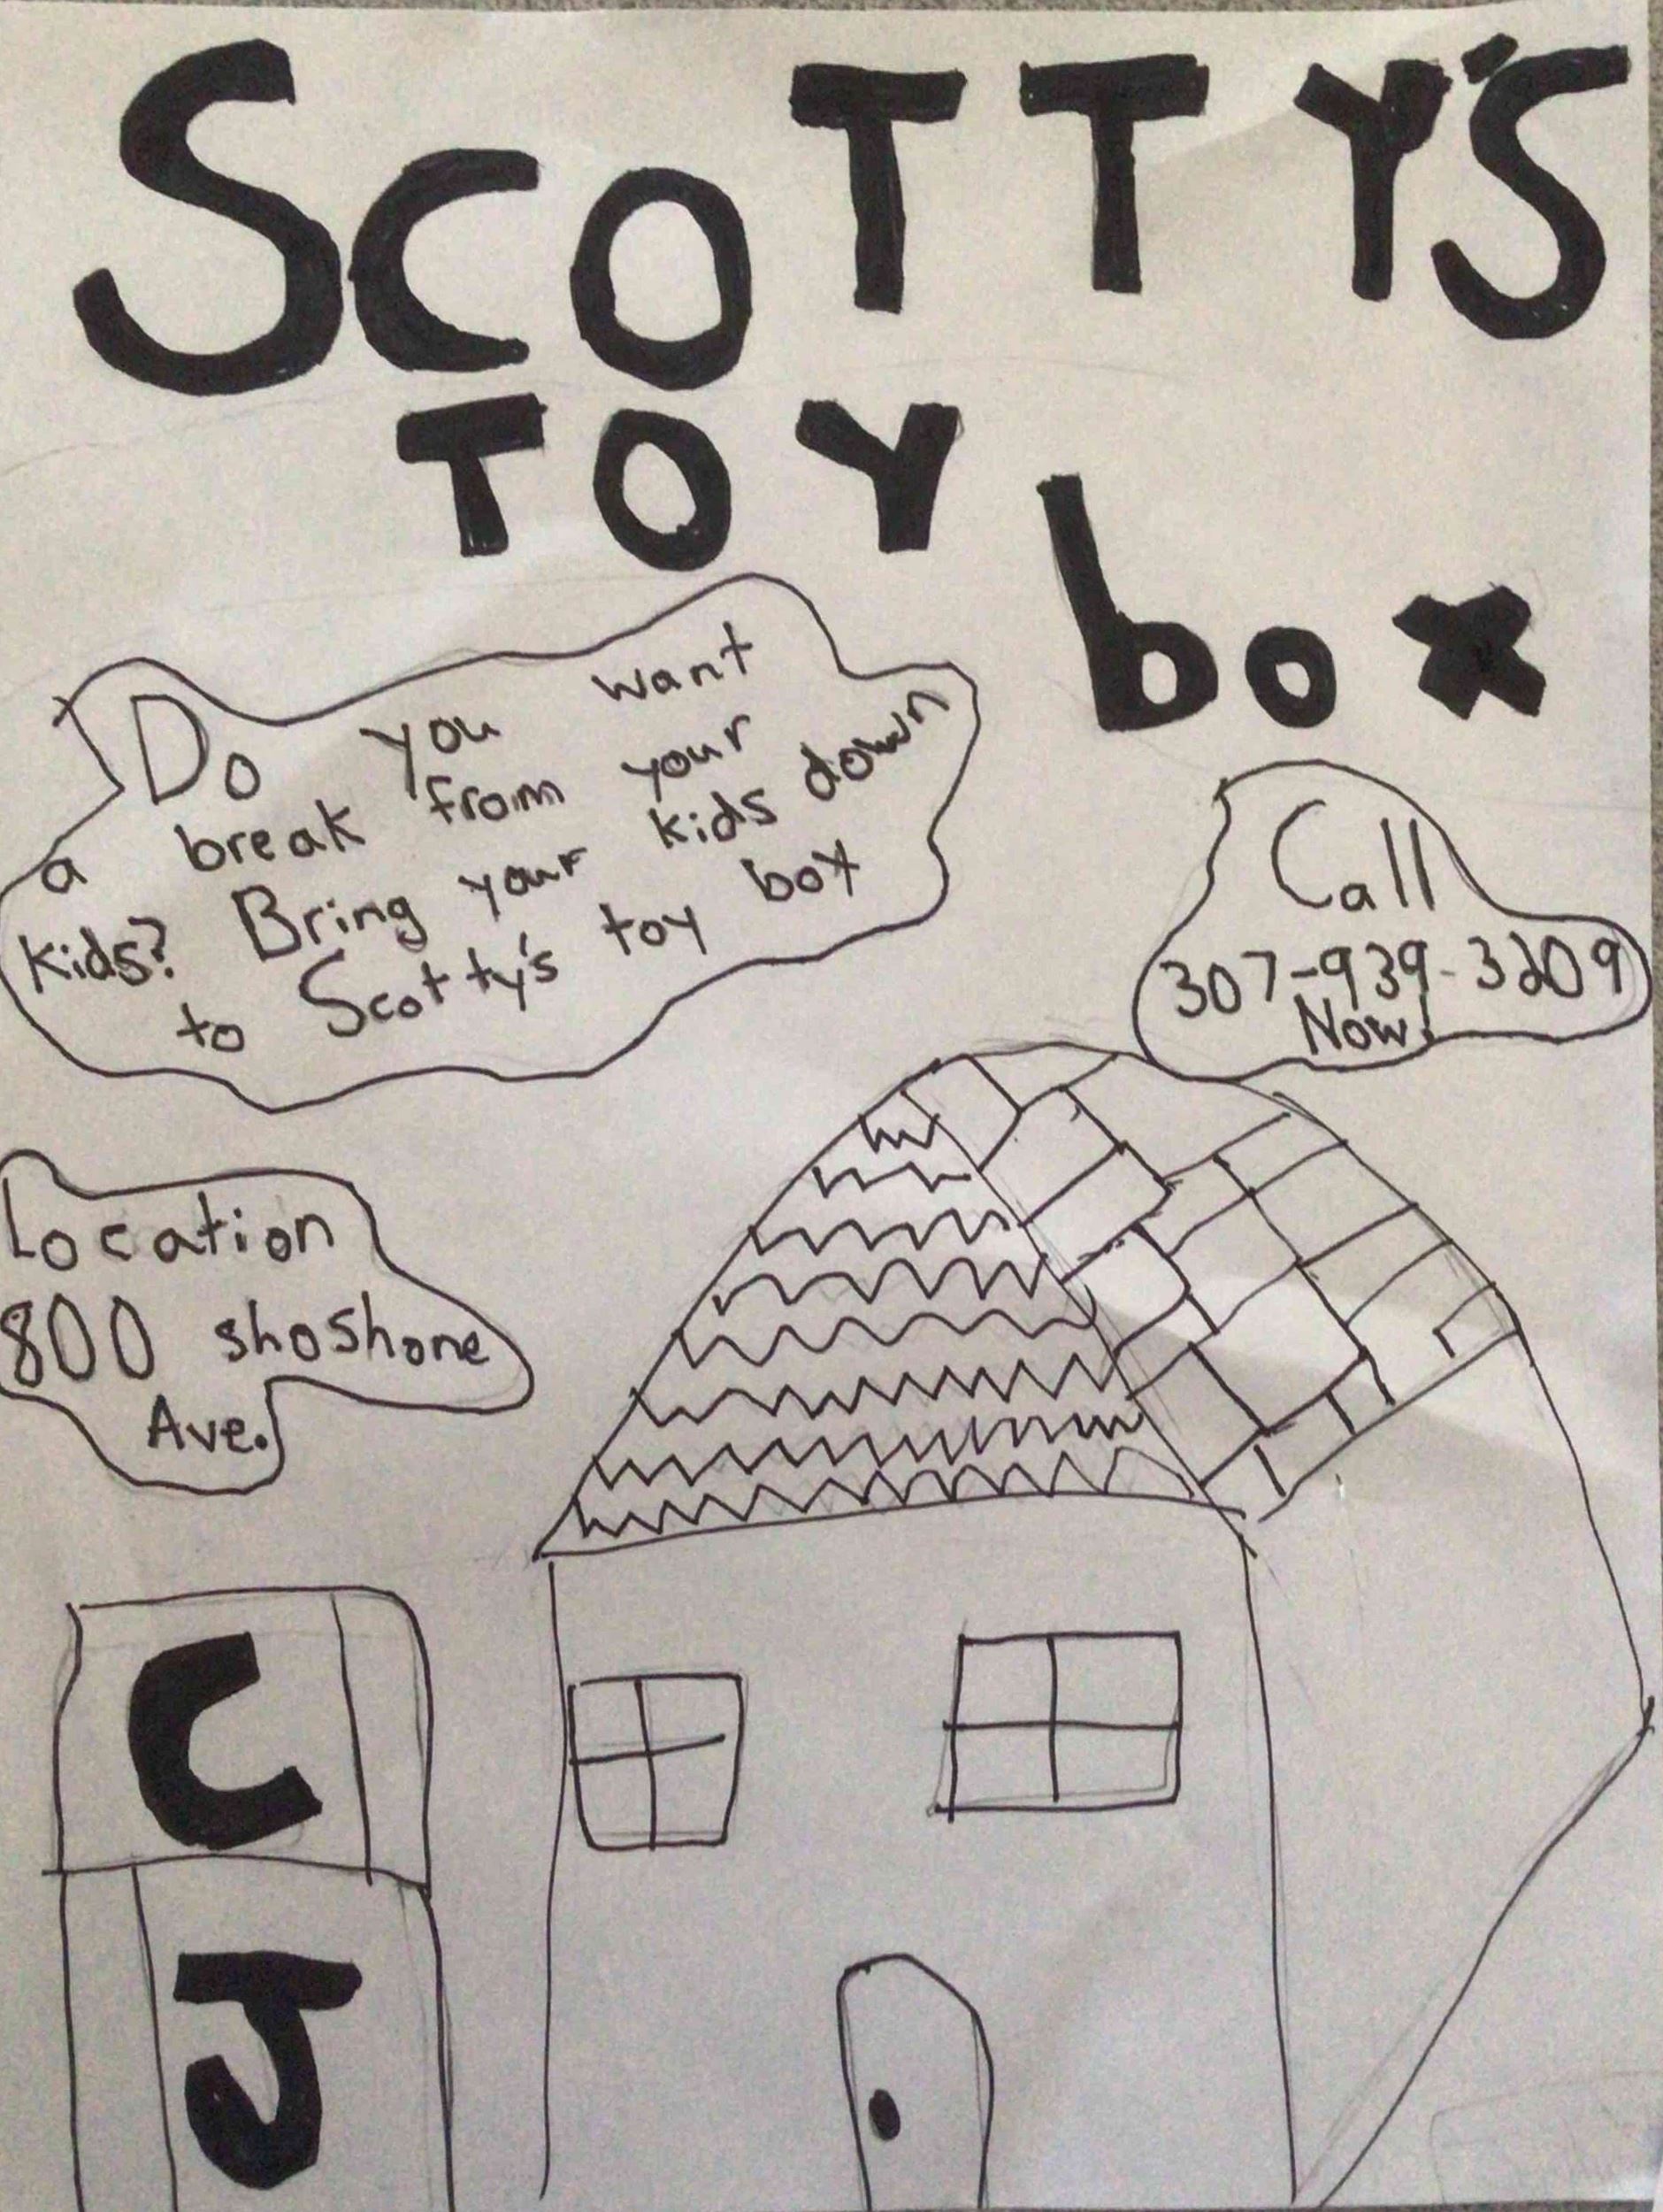 SCOTTY'S
TOY
box
Do you want
a break from your
kids? Bring your kids down
to Scotty's toy box
Call
307-939-3209
Now!
Location
800 shoshone
Ave.
C
J